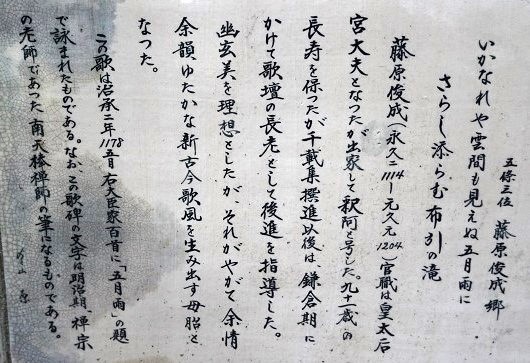 五條三位　藤原俊成卿
いかなれや雲間も見えぬ五月雨に
さらし添らむ布引の滝
藤原俊成（永久二1114ー元久元1204）官職は皇太后
宮大夫となつたが出家して釈阿と号した。九十一歳の
長寿を保ったが千載集撰進以後は鎌倉期に
かけて歌壇の長老として後進を指導した。
幽玄美を理想としたが、それがやがて余情
余韻ゆたかな新古今歌風を生み出す母胎と
なつた。
この歌は治承二年1178五月右大臣家百首に「五月雨」の題
で詠まれたものである。なおこの歌碑の文字は明治期、禅宗
の老師であった南天棒禅師の筆になるものである。